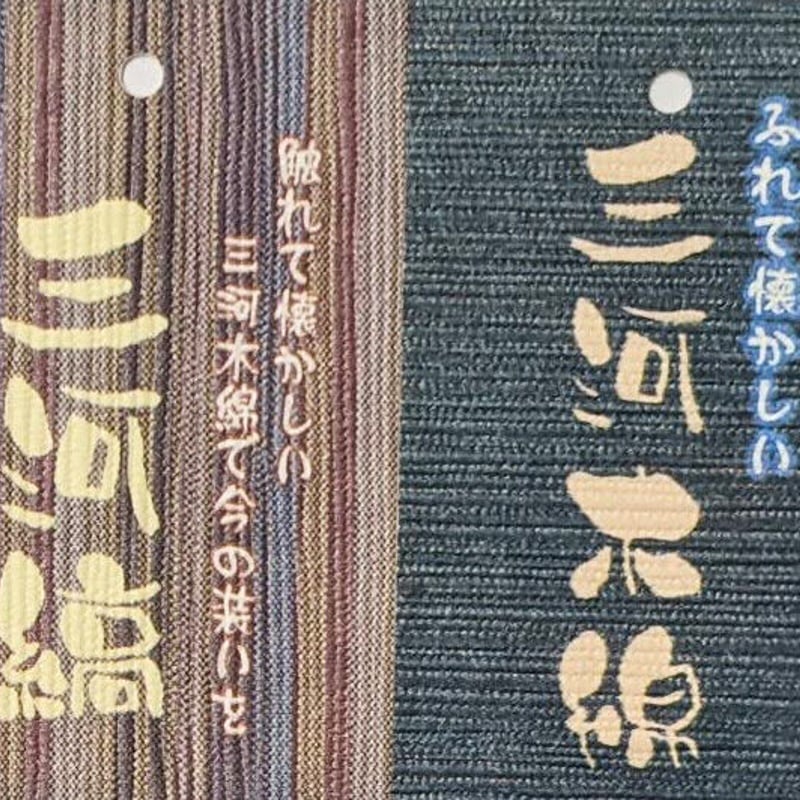 ふれて懐かしい
三河木綿
触れて懐かしい
三河木綿で今の装いを
三河縞